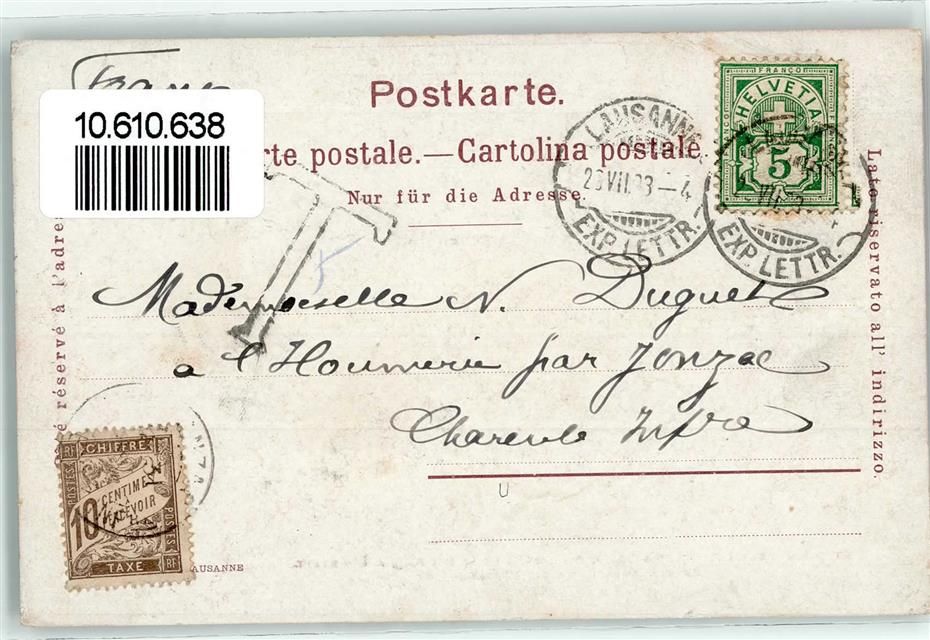 France
10.610.638
Postkarte.
rte postale.—Cartolina postale
Nur für die Adresse.
LAUSANNE
VII. 4
EXP. LETTR.
FRANCO
HELVETIA
5
EXP. LETTR.
T
é réservé à l'adre
Lato riservato all' indirizzo.
Mademoiselle N. Duguet
à l'Houmerie par Jonzac
Charente Infre
CHIFFRE
RF
POSTES
10
CENTIMES
A
PERCEVOIR
POSTES
TAXE
RF
AUSANNE
U